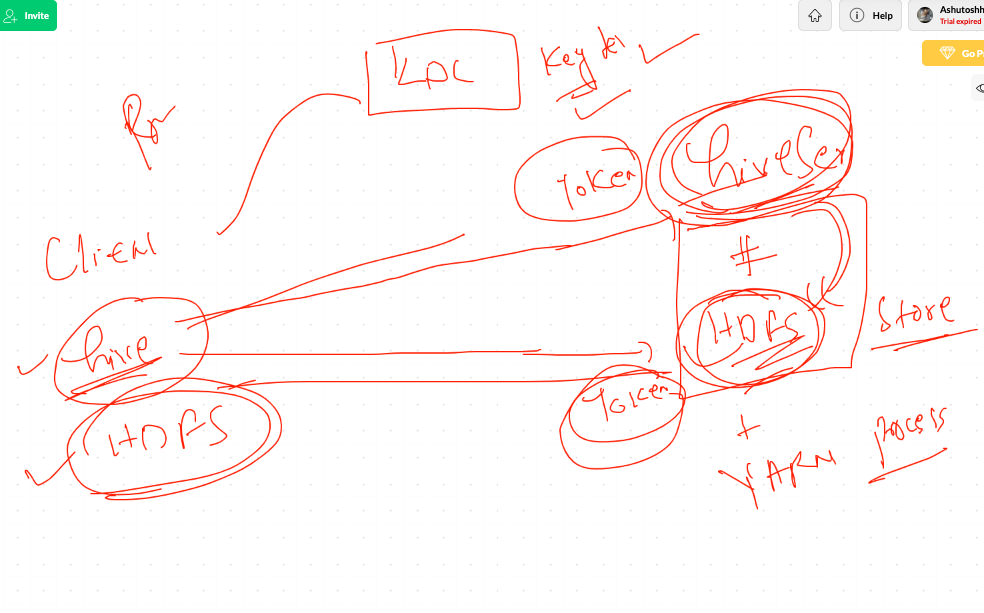 Invite
Help
Ashutoshh
Trial expired
Go P
KDC
Token
hiveSer
Client
#
hive
HDFS
Store
HDFS
Token
+
YARN
Process